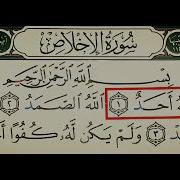 سُورَةُ الإِخْلَاصِ
بِسْمِ اللَّهِ الرَّحْمَٰنِ الرَّحِيمِ
أَحَدٌ ١ اللَّهُ الصَّمَدُ ٢
٣ وَلَمْ يَكُن لَّهُ كُفُوًا